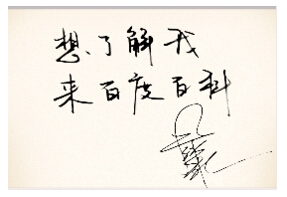 想了解我
来百度百科